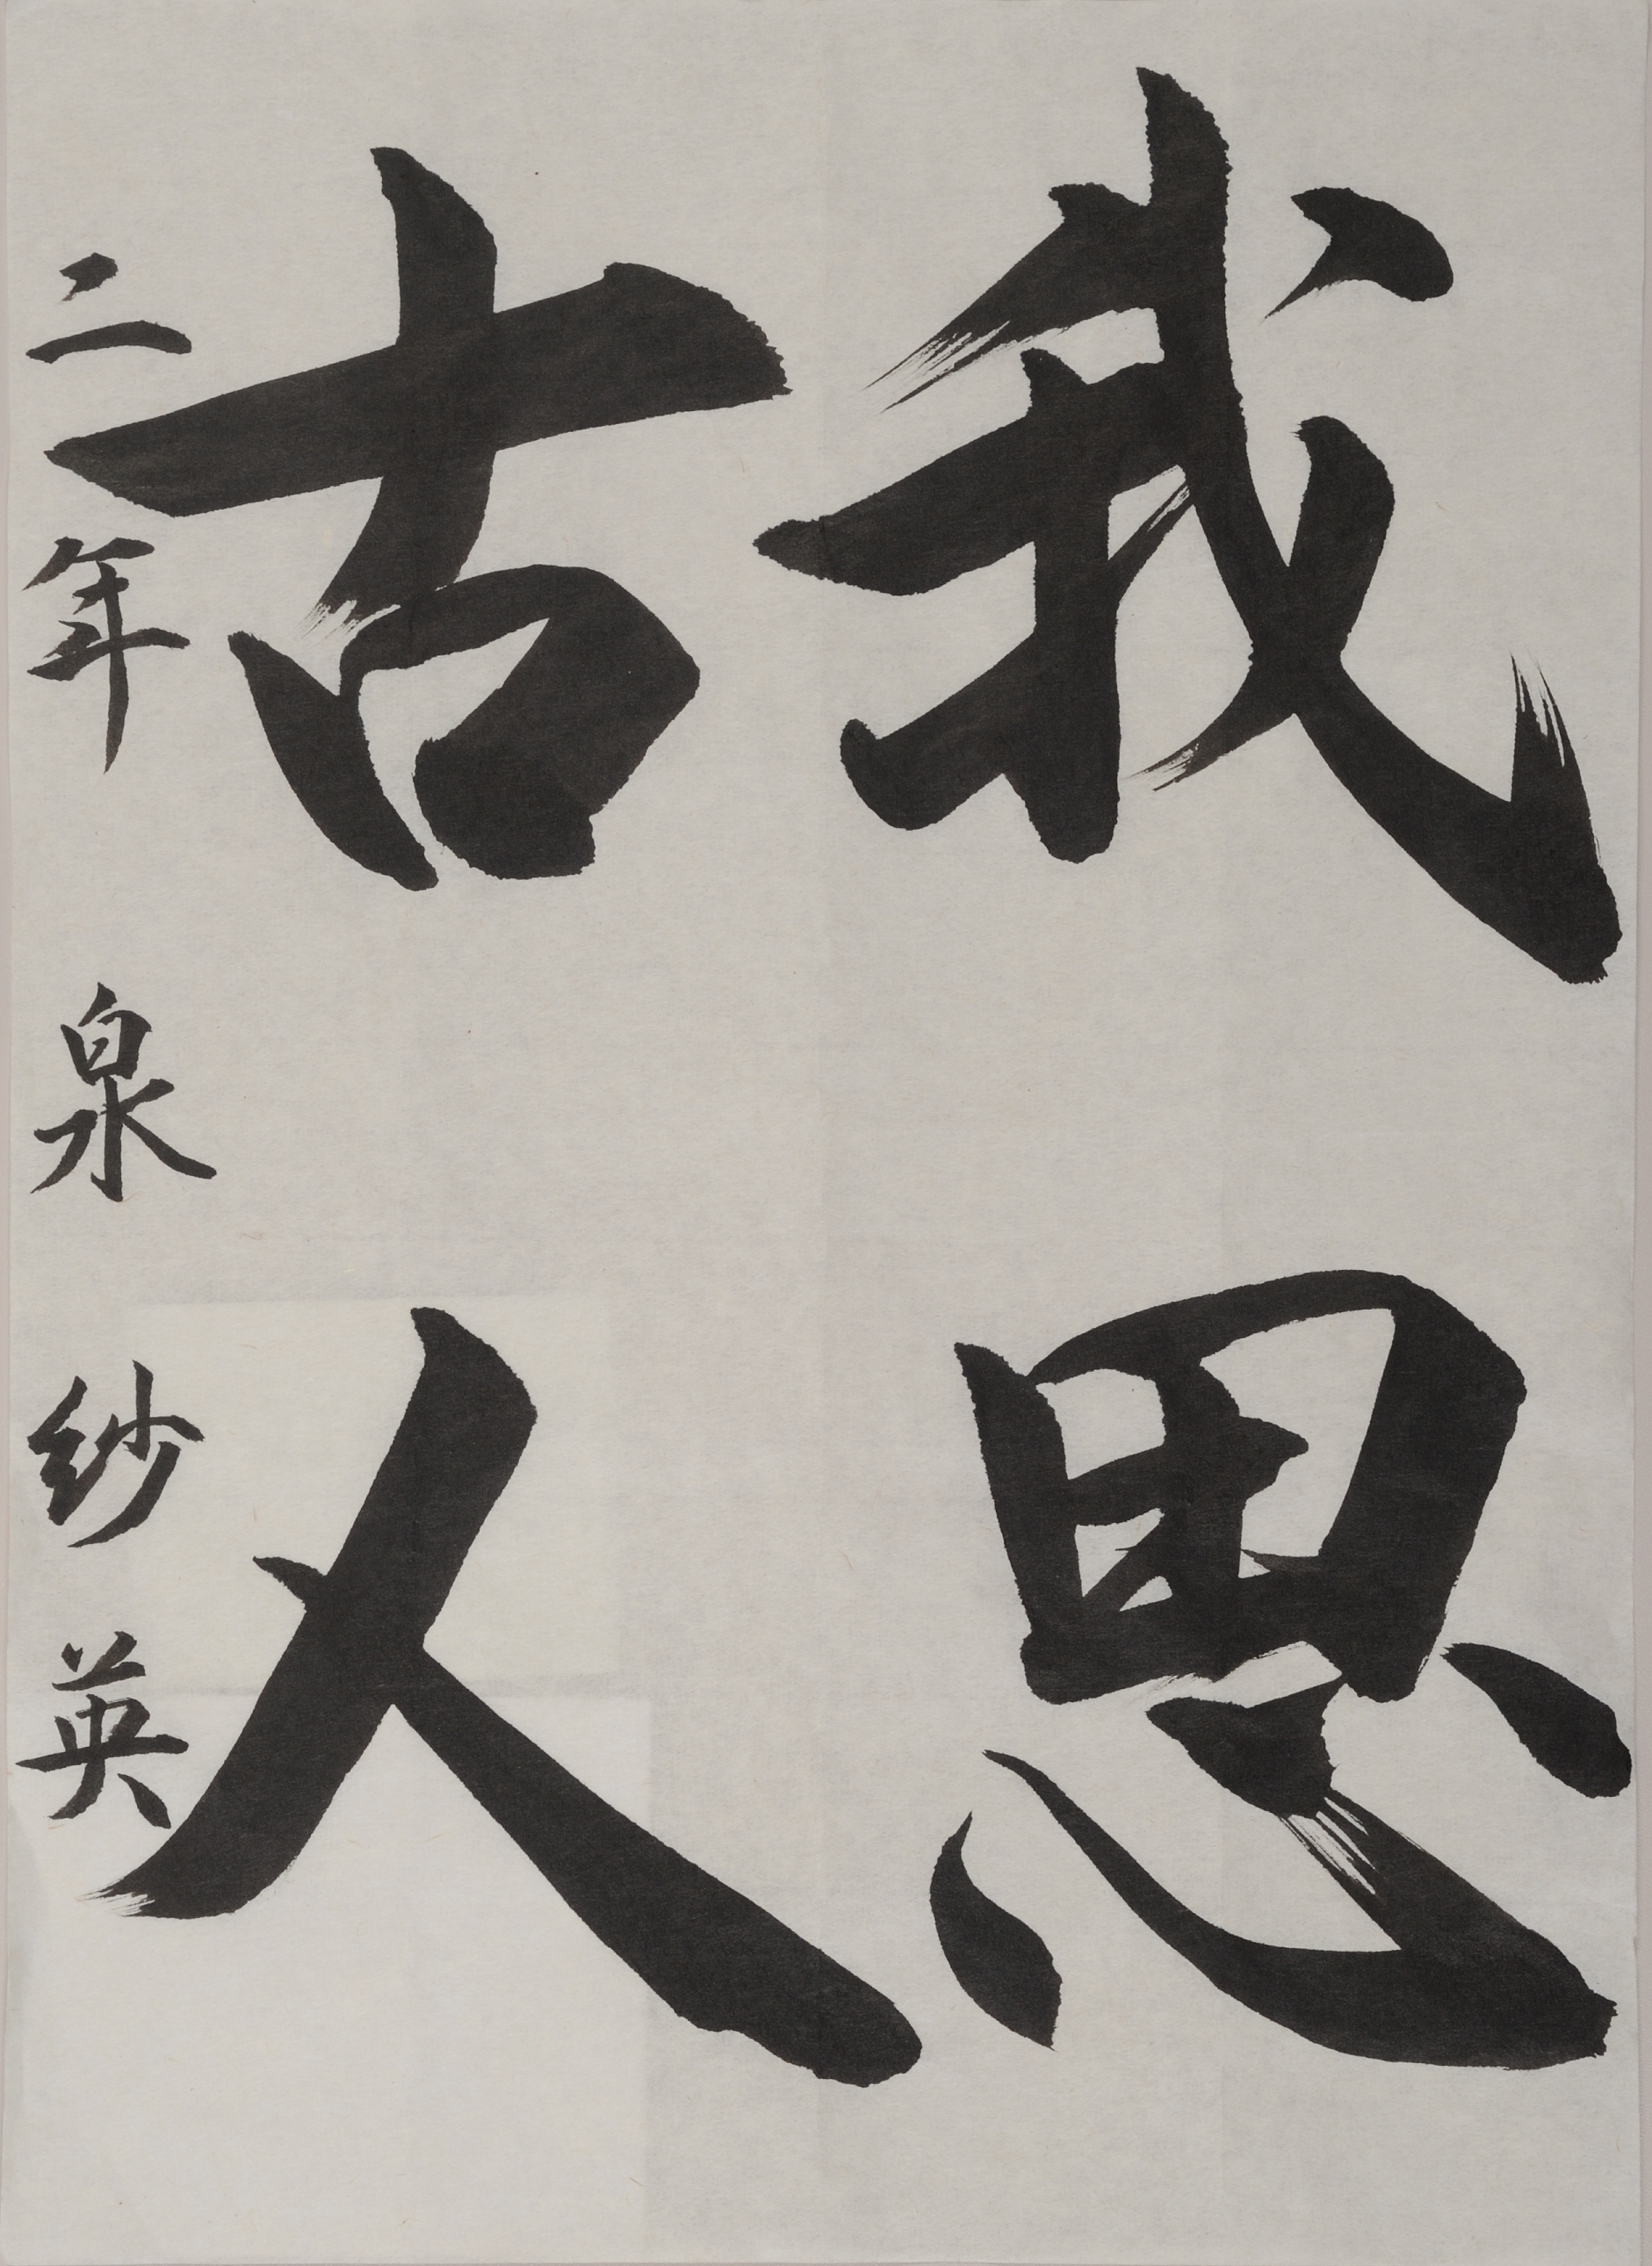 我思
古人
二年 泉 紗英